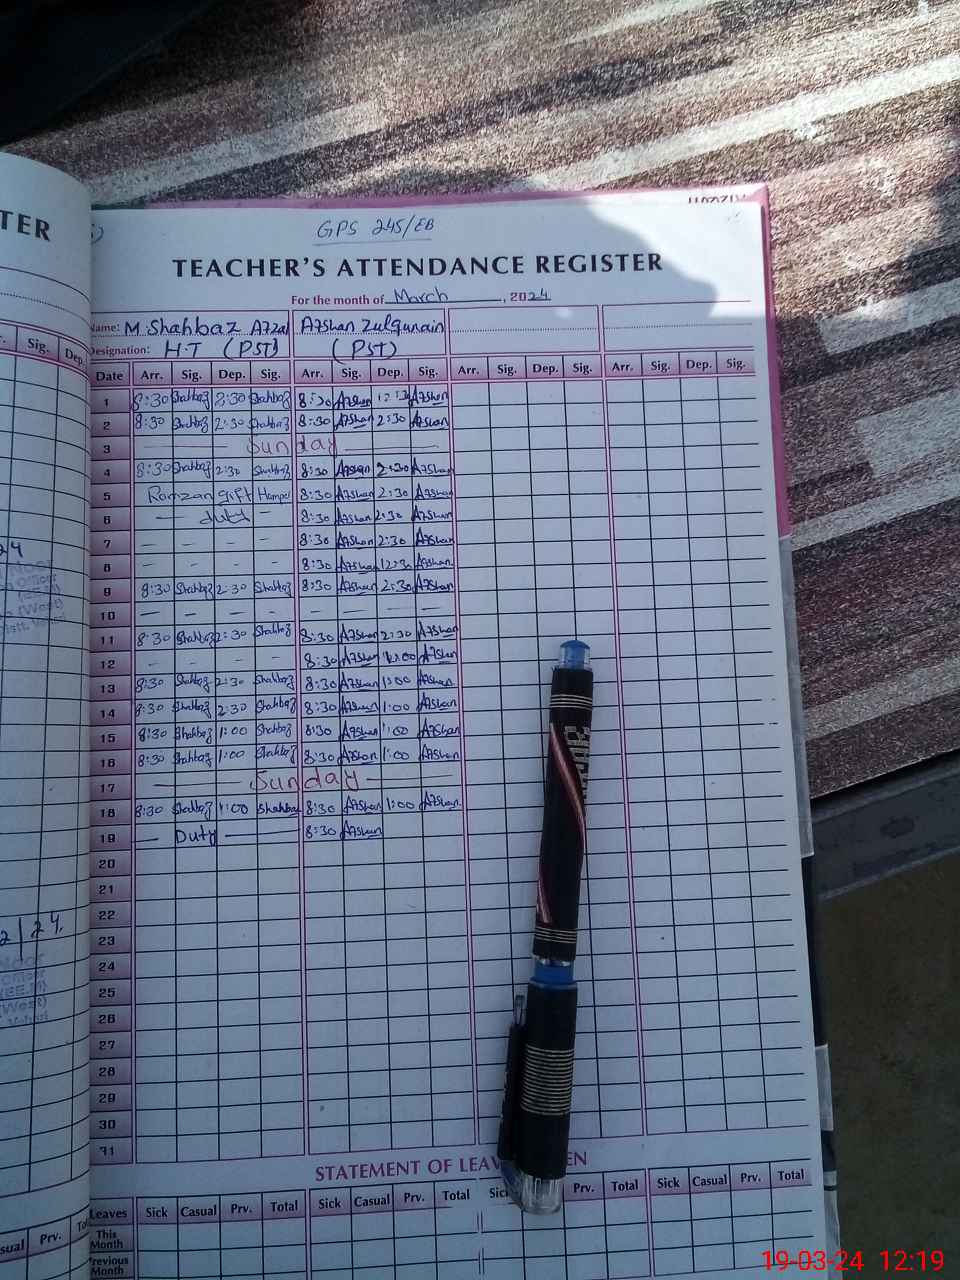 TER
GPS 245/EB
TEACHER'S ATTENDANCE REGISTER
For the month of March, 2024
Name: M Shahbaz Afzal Afshan Zulqurnain
Designation: H.T (PST) (PST)
Sig. Dep. Date Arr. Sig. Dep. Sig. Arr. Sig. Dep. Sig. Arr. Sig. Dep. Sig. Arr. Sig. Dep. Sig.
1 8:30 Shahbaz 2:30 Shahbaz 8:30 Afshan 12:30 Afshan
2 8:30 Shahbaz 2:30 Shahbaz 8:30 Afshan 2:30 Afshan
3 Sunday
4 8:30 Shahbaz 2:30 Shahbaz 8:30 Afshan 2:30 Afshan
5 Ramzan gift Hamper 8:30 Afshan 2:30 Afshan
6 – duty – 8:30 Afshan 2:30 Afshan
7 – – – – 8:30 Afshan 2:30 Afshan
8 – – – – 8:30 Afshan 12:30 Afshan
9 8:30 Shahbaz 2:30 Shahbaz 8:30 Afshan 2:30 Afshan
10 – – – – – – – –
11 8:30 Shahbaz 2:30 Shahbaz 8:30 Afshan 2:30 Afshan
12 – – – – 8:30 Afshan 1:00 Afshan
13 8:30 Shahbaz 2:30 Shahbaz 8:30 Afshan 1:00 Afshan
14 8:30 Shahbaz 2:30 Shahbaz 8:30 Afshan 1:00 Afshan
15 8:30 Shahbaz 1:00 Shahbaz 8:30 Afshan 1:00 Afshan
16 8:30 Shahbaz 1:00 Shahbaz 8:30 Afshan 1:00 Afshan
17 Sunday
18 8:30 Shahbaz 1:00 Shahbaz 8:30 Afshan 1:00 Afshan
19 – Duty – 8:30 Afshan
20
21
22
23
24
25
26
27
28
29
30
31
STATEMENT OF LEAV EN
Leaves Sick Casual Prv. Total Sick Casual Prv. Total Sick Prv. Total Sick Casual Prv. Total
This Month
Previous Month
19-03-24 12:19